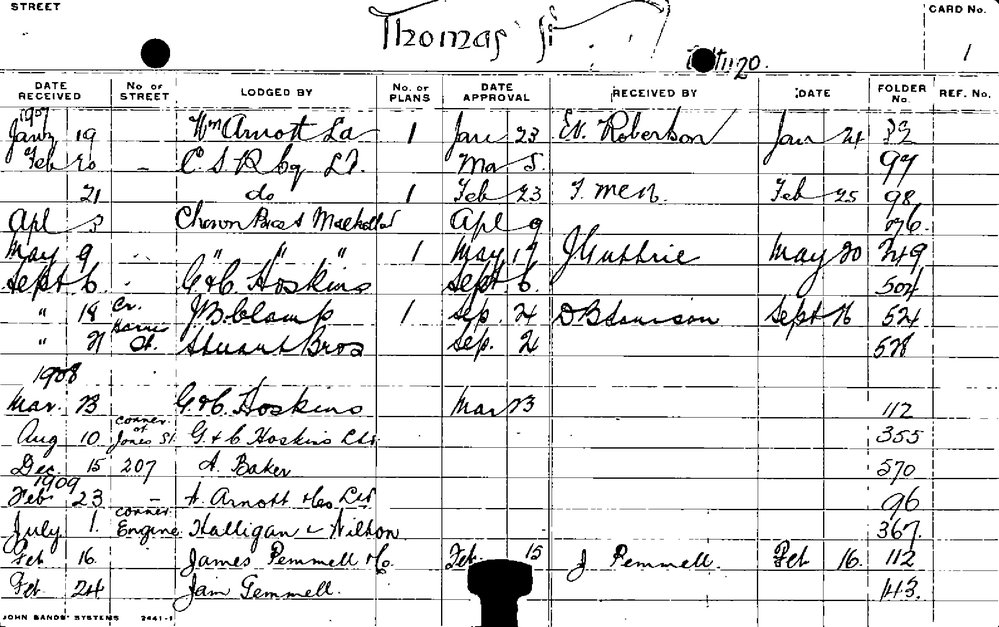 STREET Thomas St CARD No. 1
DATE RECEIVED No. OF STREET LODGED BY No. OF PLANS DATE APPROVAL RECEIVED BY DATE FOLDER No. REF. No.
1907
Jany 19 Wm Arnott Ld 1 Jan 23 Robertson Jan 24
Feb 20 - C. S. R. Coy Ld. Mar 5. 97
21 do 1 Feb 23 Feb 25 98
Apl 3 Chown Bros & Mulholland Apl 9 176.
May 9 " " " 1 May 17 J Guthrie May 20 249
Sept 6 G & C Hoskins Sept 6. 504
" 18 Cr. Harris St. J B Clamp 1 Sep. 24 D B Davison Sept 26 524
" 21 Stuart Bros Sep. 528
1908
Mar. 23 G & C. Hoskins Mar 23 112
Aug 10 corner of Jones St G & C Hoskins Ltd. 355
Dec. 15 207 A. Baker 570
1909
Feb 23 - A. Arnott & Co Ltd 96
July 1. corner Engine Halligan & Wilton 367.
Feb 16. James Pemmell & Co. Feb. 15 J Pemmell Feb 16. 112
Feb. 24 Jam Gemmell. 143.
JOHN SANDS' SYSTEMS 2441-1